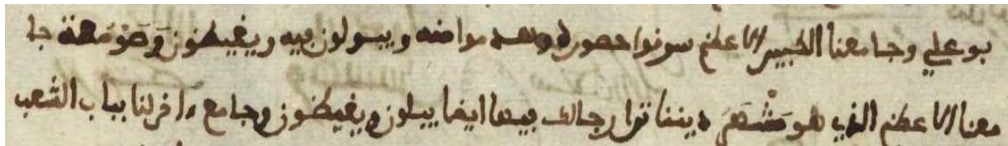 بو علي وجامعنا الكبير الاعظم سونوا حصوره وهدموا منه ويبولون فيه ويغيطون وصومعة جا
معنا الاعظم الذي هو مشهر ديننا ترا رجالك بيها ايضا يبلون ويغيطون وجامع افرلنا بباب الشعب